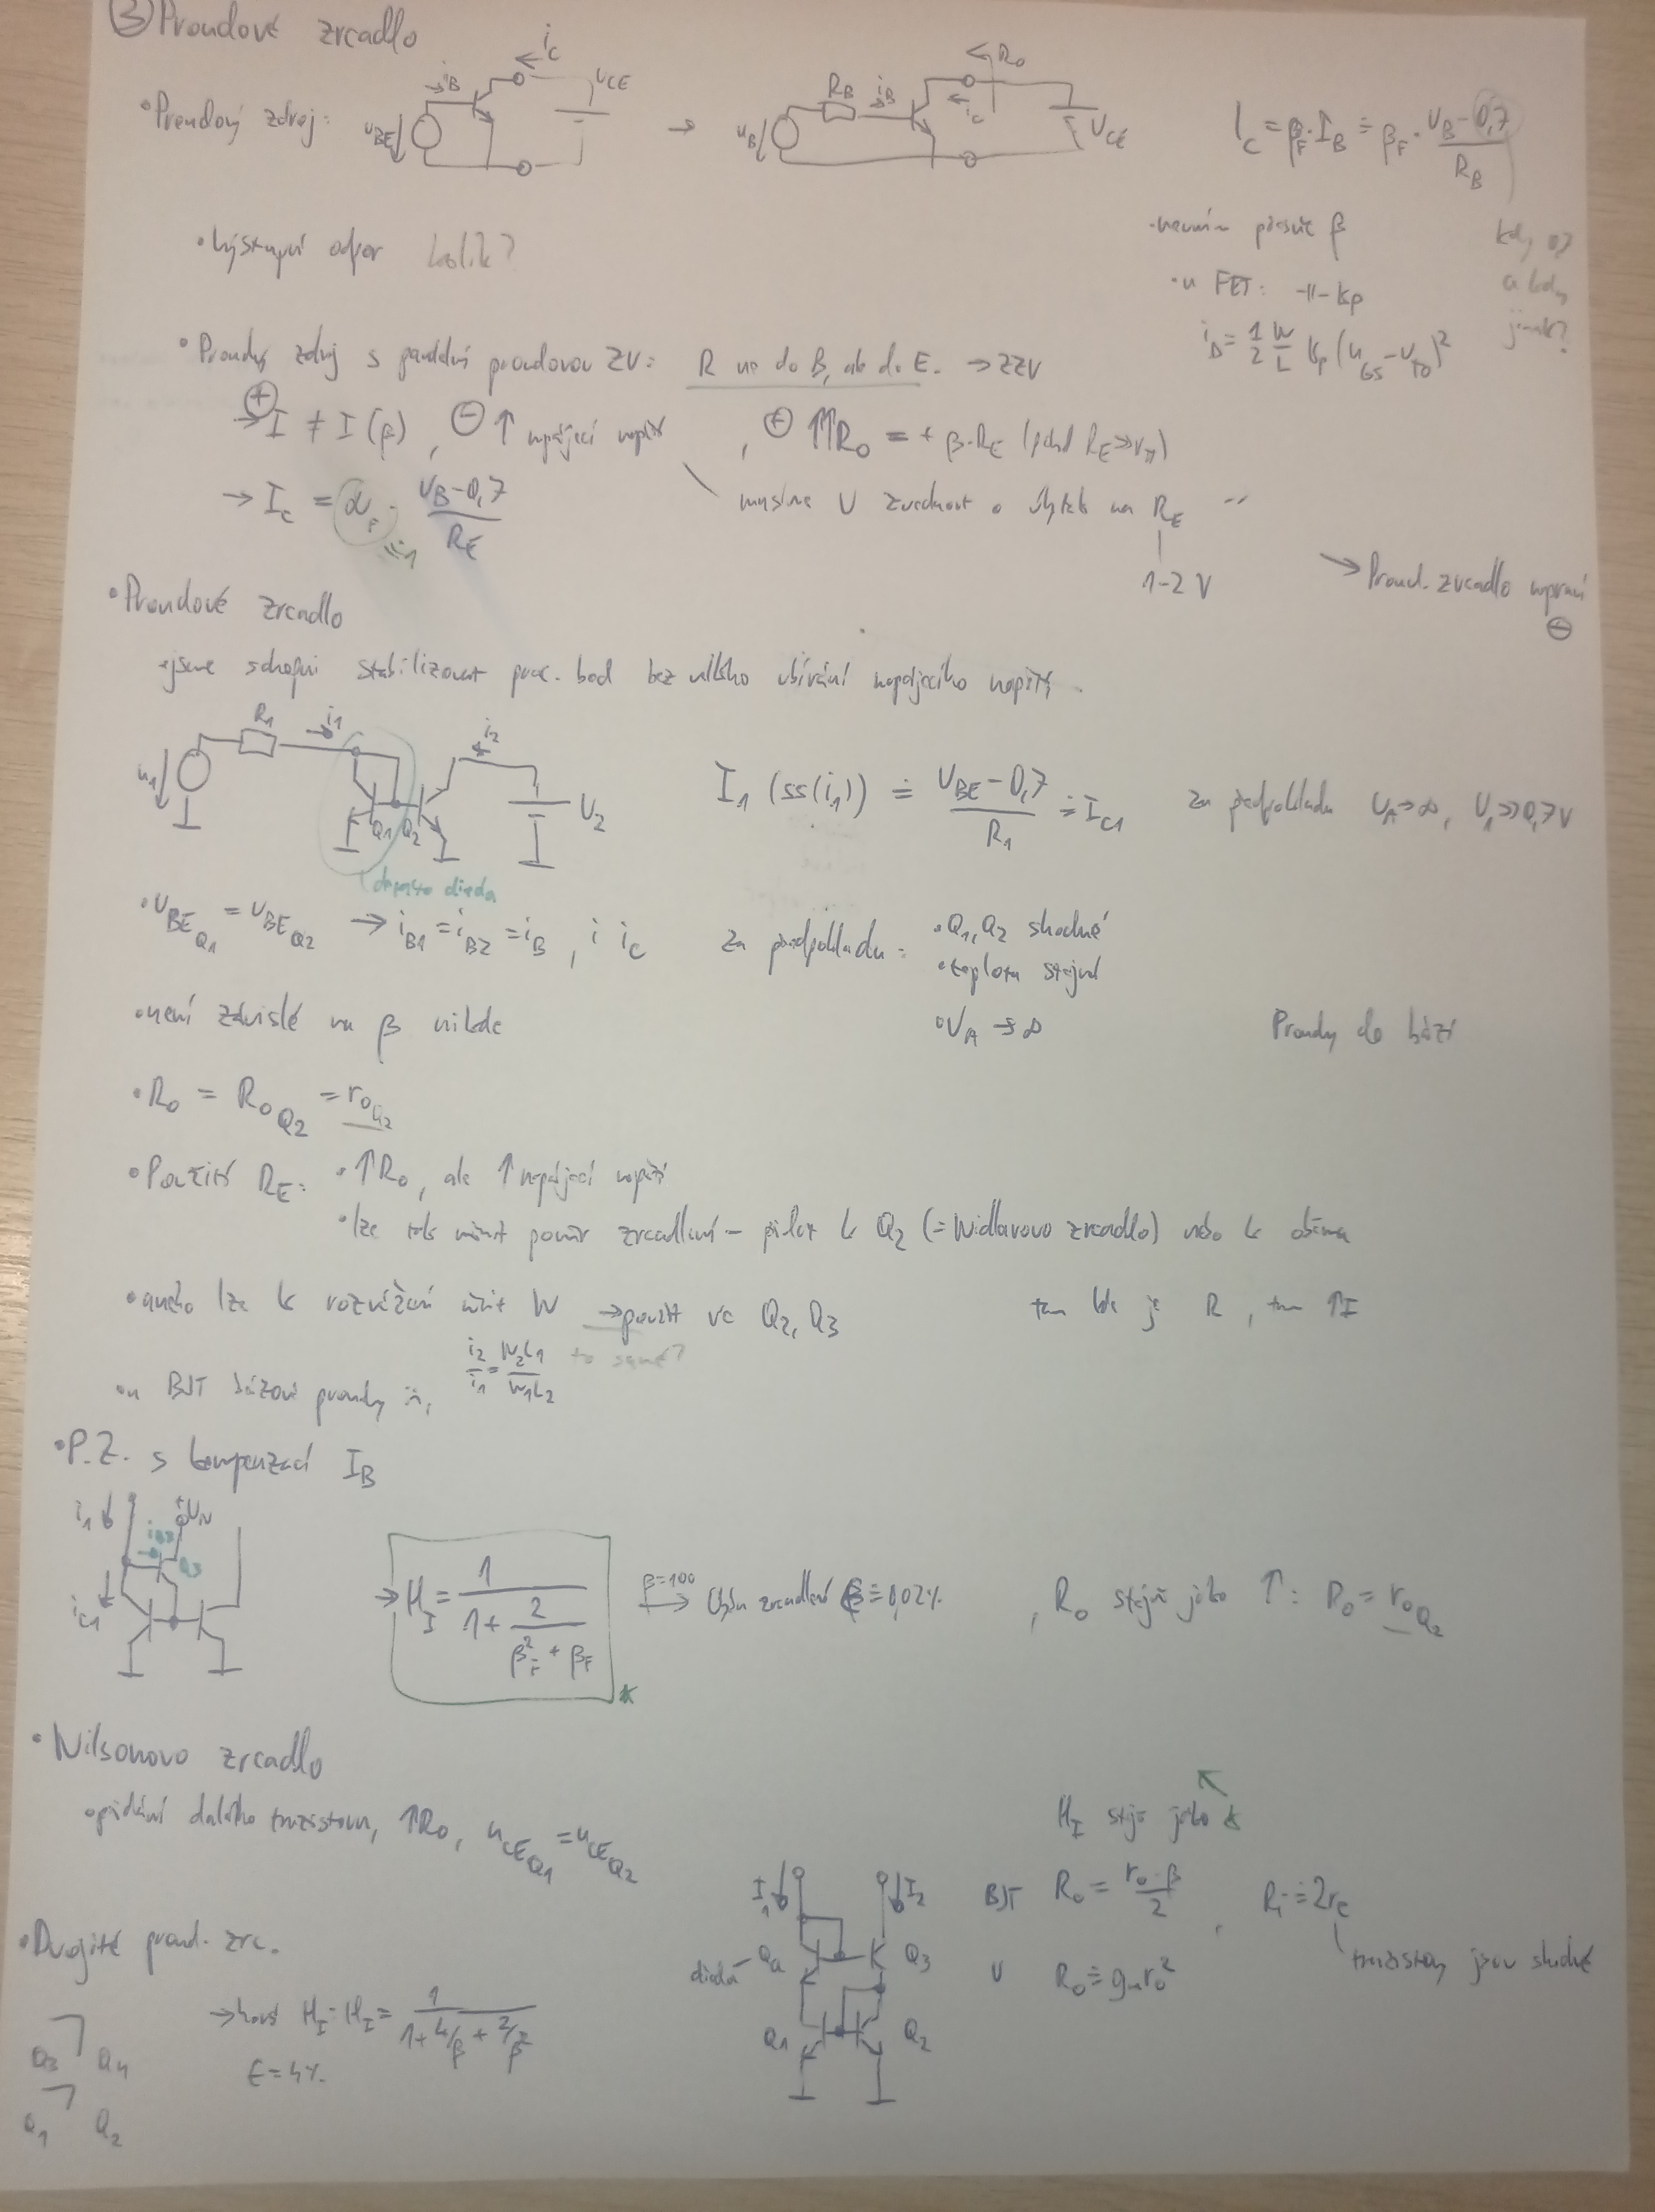 ③ Proudové zrcadlo
• Proudový zdroj:
u_BE i_B i_C U_CE
→
u_B R_B i_B i_C R_o U_CE
I_C = β_F · I_B ≐ β_F · (U_B − 0,7)/R_B
• Výstupní odpor kolik?
• přesně β
• u FET: –||– Kp
i_D = 1/2 W/L Kp (u_GS − U_T0)²
kdy 0,7
a kdy
jinak?
• Proudový zdroj s proudovou ZV: R ne do B, ale do E. → ZZV
⊕ → I ≠ I(β), ⊖ ↑ napájecí napětí, ⊕ ↑↑R_o = + β·R_E (pokud R_E ≫ r_π)
→ I_C = α_F · (U_B − 0,7)/R_E
≐1
musíme U zvednout o úbytek na R_E
1-2 V
→ Proud. zrcadlo napraví ⊖
• Proudové zrcadlo
• jsme schopni stabilizovat prac. bod bez ubírání napájecího napětí.
u_1 R_1 i_1 Q1 Q2 i_2 U_2
I_1 (ss(i_1)) ≐ (U_BE − 0,7)/R_1 ≐ I_C1 za předpokladu U_A → ∞, U_1 ≫ 0,7V
dioda
• u_BE_Q1 = u_BE_Q2 → i_B1 = i_B2 = i_B, i i_C za předpokladu: • Q1, Q2 shodné
• teplota stejná
• U_A → ∞
• není závislé na β nikde
Proudy do bází
• R_o = R_o_Q2 = r_o_Q2
• Použití R_E: • ↑R_o, ale ↑ napájecí napětí
• lze tak měnit poměr zrcadlení – přidat k Q2 (= Widlarovo zrcadlo) nebo k oběma
• anebo lze k rozvážení měnit W → použít víc Q2, Q3 tam kde je R, tam ↑I
i_2/i_1 = W_2L_1/W_1L_2 to samé?
• u BJT bázové proudy
• P.Z. s kompenzací I_B
i_1 +U_N
i_B3
Q3
i_C1
→ H_I = 1/(1 + 2/(β_F² + β_F)) *
β=100 → Chyba zrcadlení ε ≐ 0,02%, R_o stejné jako ↑: R_o = r_o_Q2
• Wilsonovo zrcadlo
• přidání dalšího tranzistoru, ↑R_o, u_CE_Q1 = u_CE_Q2
H_I stejné jako *
I_1 I_2
BJT R_o = r_o·β/2, R_i ≐ 2r_e
dioda Q4 Q3
U R_o ≐ g_m r_o²
tranzistory jsou shodné
Q1 Q2
• Dvojité proud. zrc.
→ H_I: H_I = 1/(1 + 4/β + 2/β²)
ε = 4%
Q3 Q4
Q1 Q2